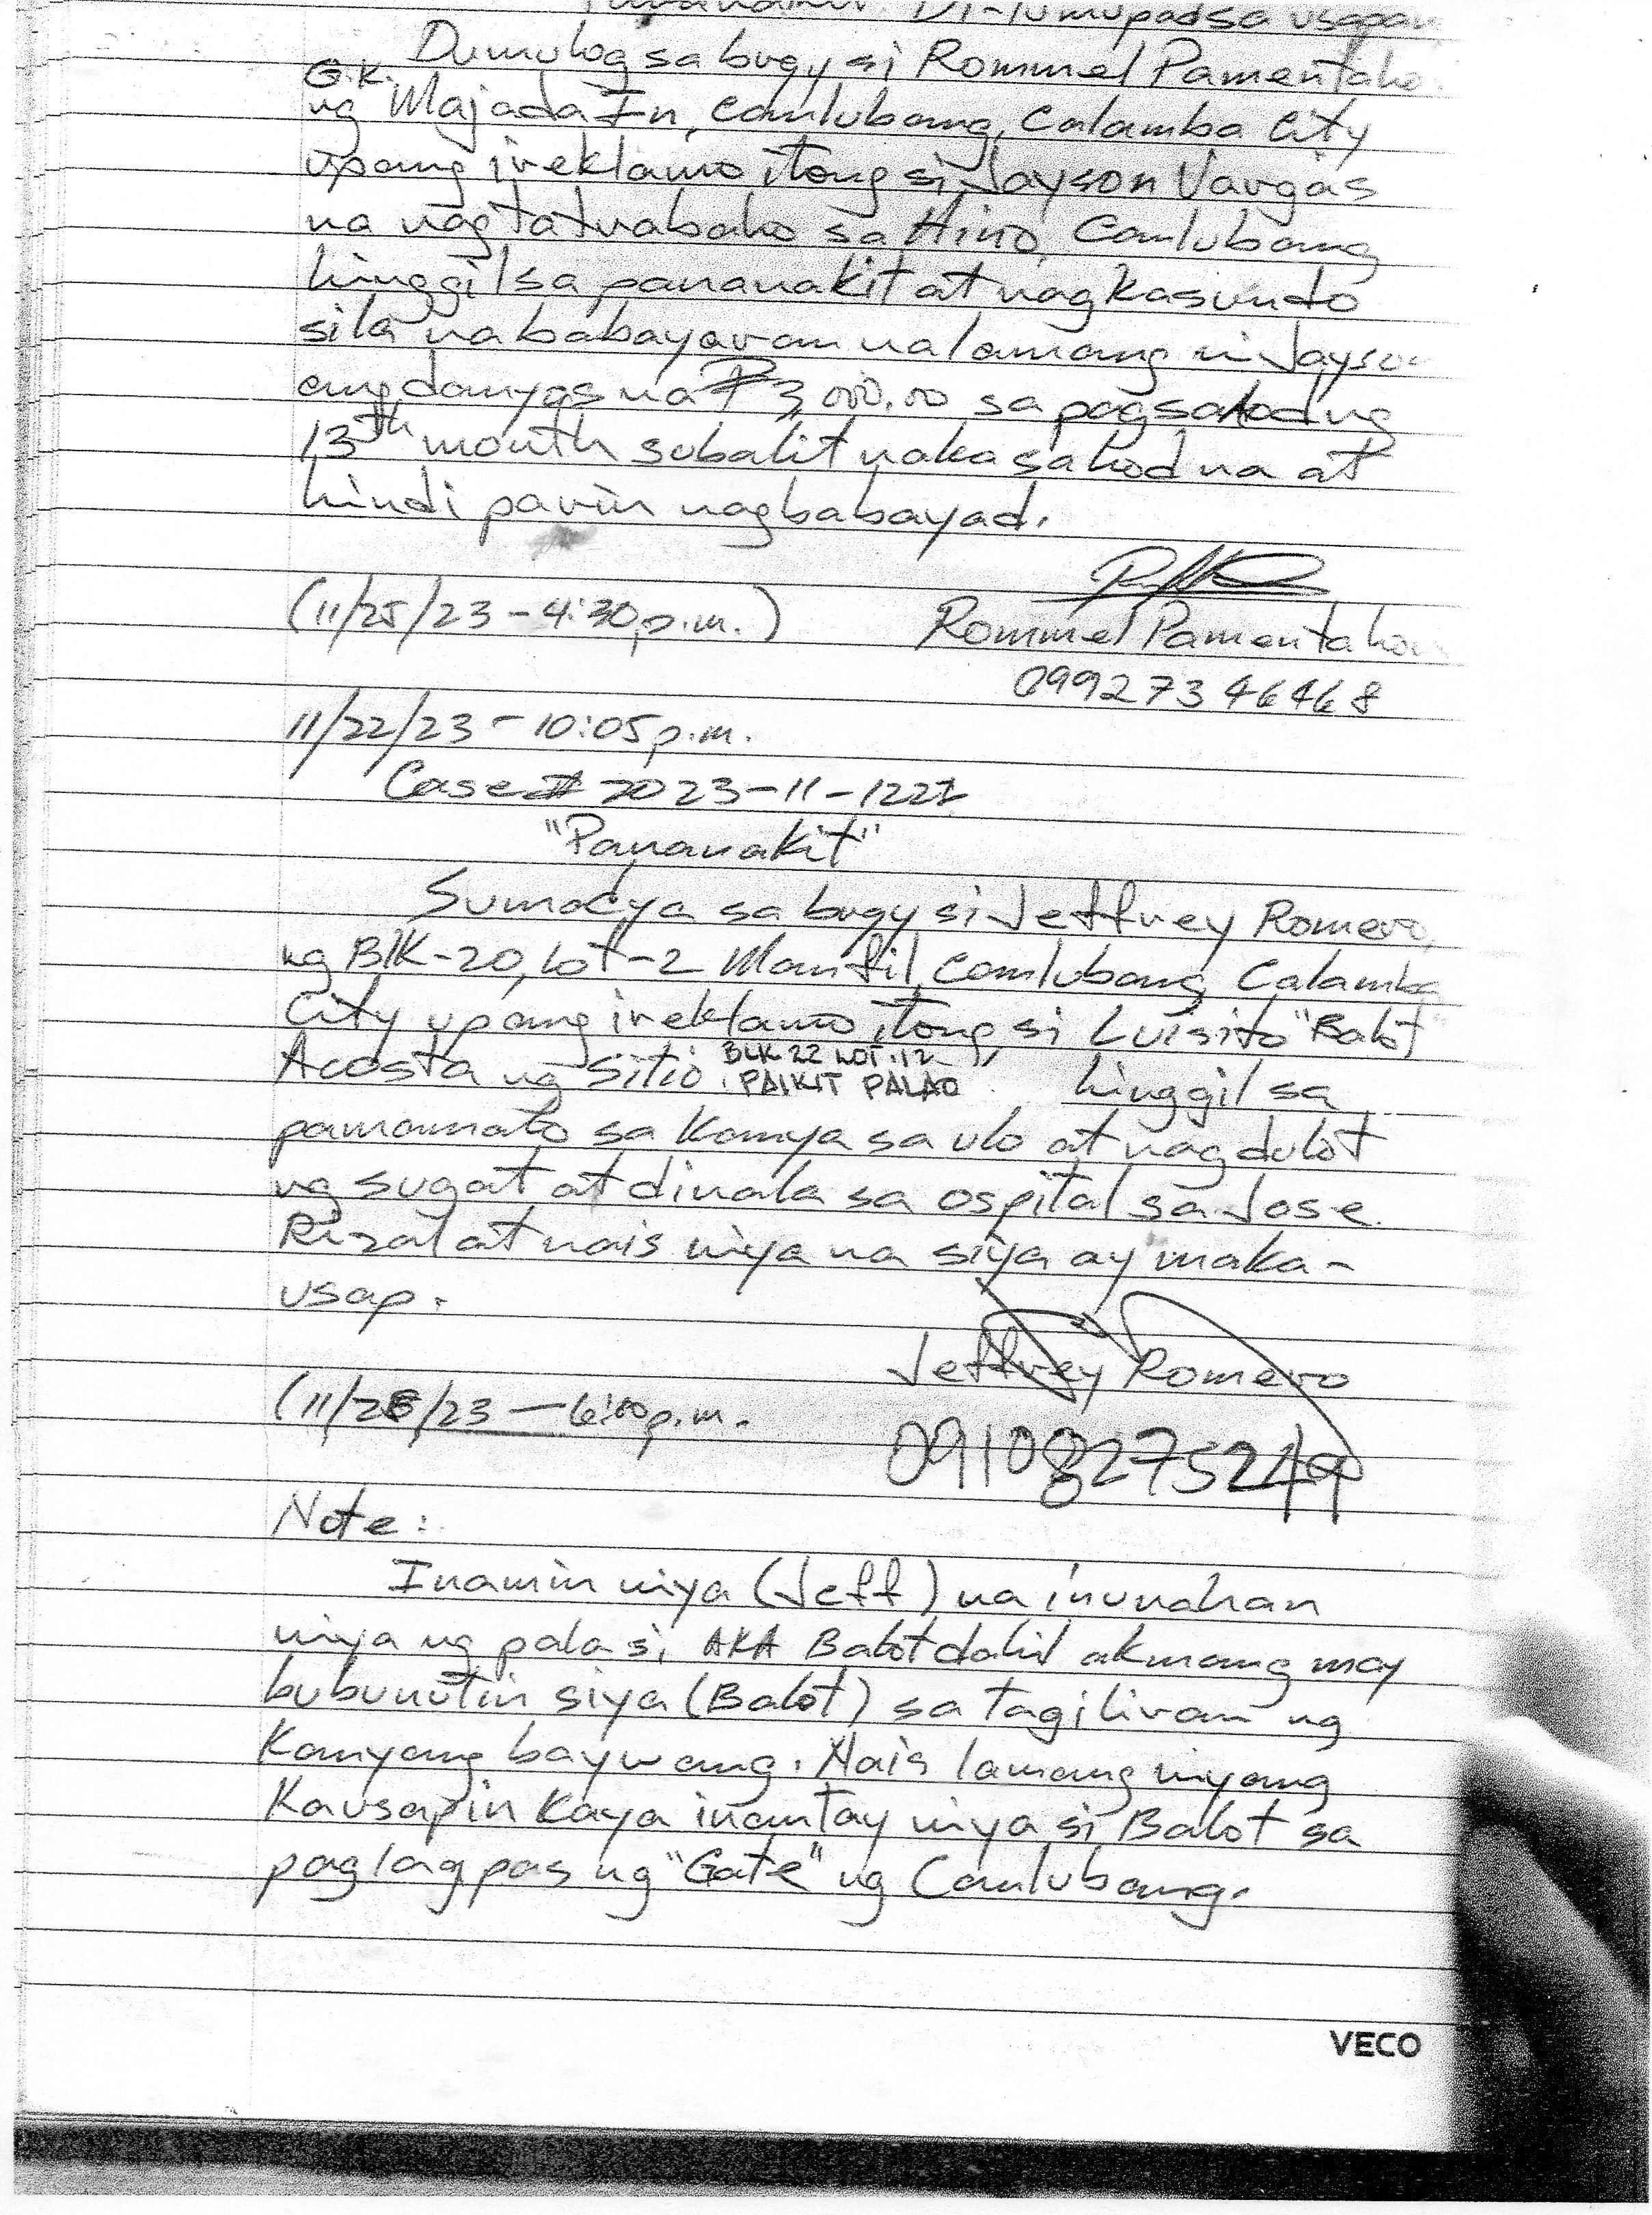 Di-tumupad sa usapan
Dumulog sa brgy si Rommel Pamentaho
G.K.
ng Majada In, Canlubang, Calamba City
upang ireklamo itong si Jayson Vargas
na nagtatrabaho sa Hino, Canlubang
hinggil sa pananakit at nagkasundo
sila na babayaran na lamang ni Jayson
ang danyos na ₱3,000.00 sa pagsahod ng
13th month subalit nakasahod na at
hindi parin nagbabayad.
(11/25/23 - 4:30 p.m.) Rommel Pamentaho
09927346468
11/22/23 - 10:05 p.m.
Case# 2023-11-1227
"Pananakit"
Sumadya sa brgy si Jeffrey Romero,
ng Blk-20, Lot-2 Manfil, Canlubang, Calamba
City upang ireklamo itong si Luisito "Balot"
Acosta ng Sitio BLK 22 LOT.12 PAIKIT PALAO hinggil sa
pamamato sa kanya sa ulo at nagdulot
ng sugat at dinala sa ospital sa Jose
Rizal at nais niya na siya ay maka-
usap.
Jeffrey Romero
(11/26/23 — 6:00 p.m.
09108275249
Note:
Inamin niya (Jeff) na inunahan
niya ng pala si AKA Balot dahil akmang may
bubunutin siya (Balot) sa tagiliran ng
kanyang baywang. Nais lamang niyang
kausapin kaya inantay niya si Balot sa
paglagpas ng "Gate" ng Canlubang.
VECO